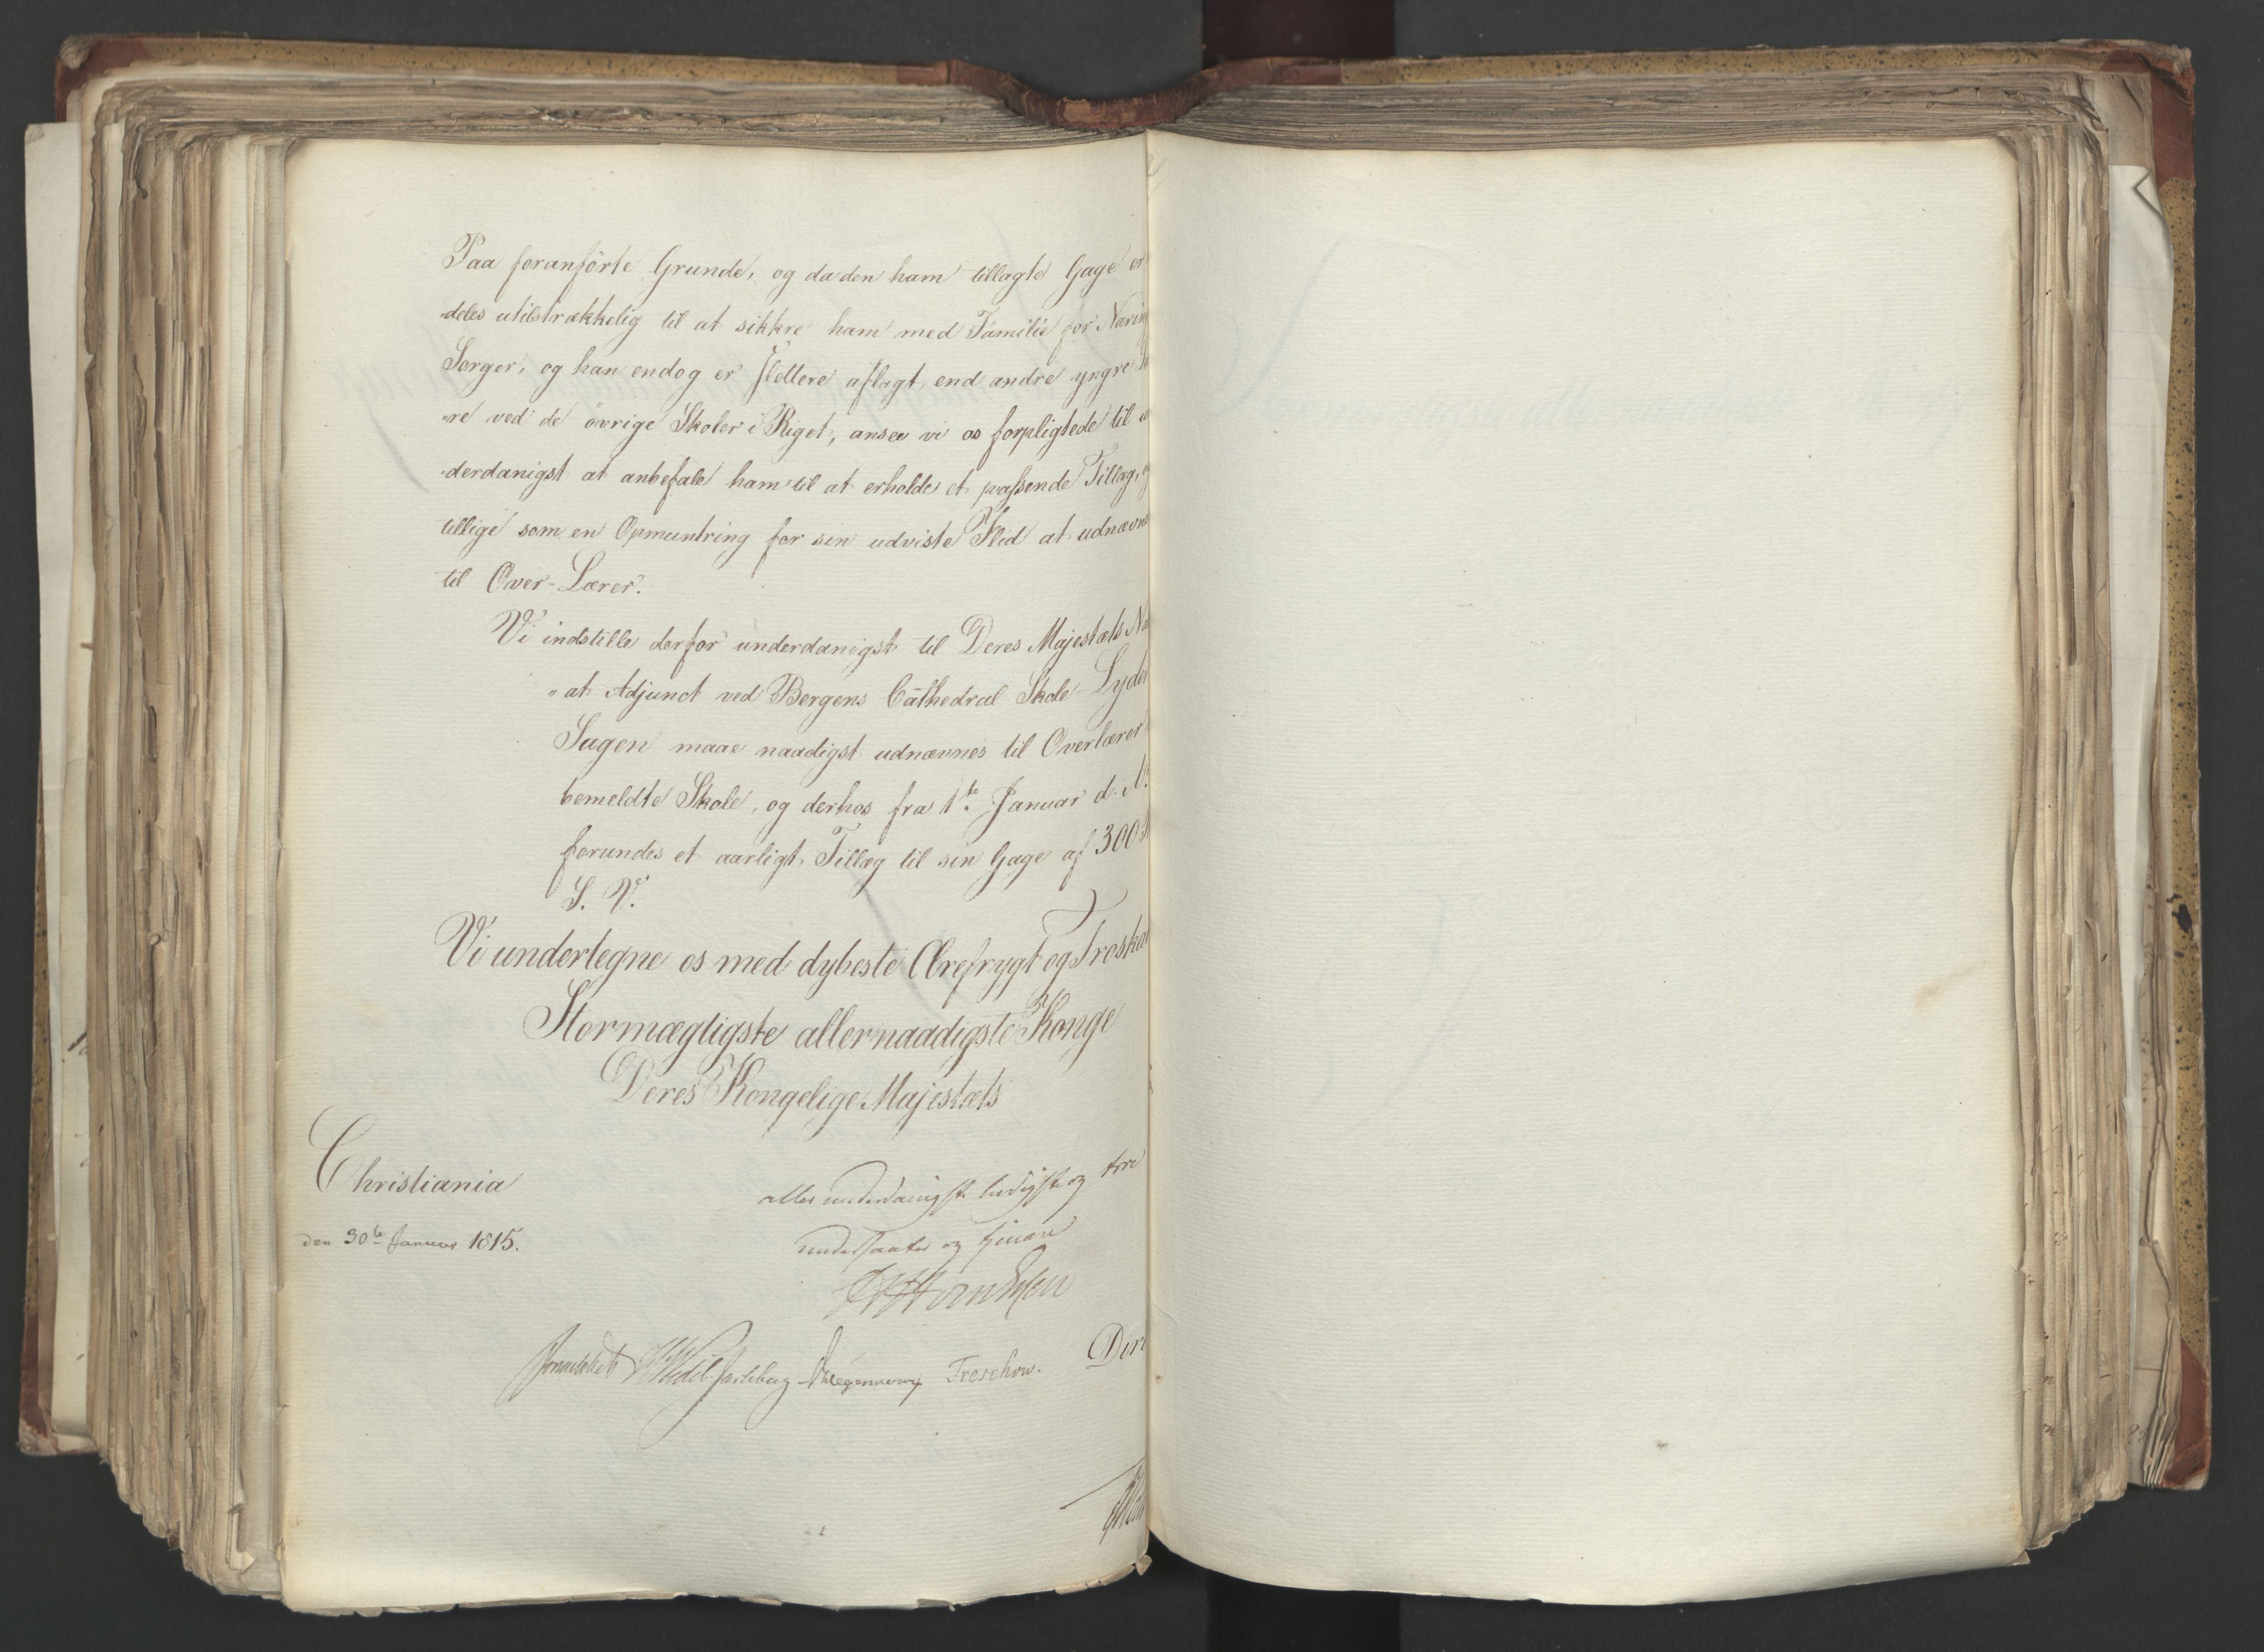 Paa foranförte Grunde, og da den ham tillagte Gage er
deles utilstrækkelig til at sikkre ham med Familie for Nærin
Sorger, og han endog er slettere aflagt, end andre yngre
re ved de övrige Skoler i Riget, ansee vi os forpligtede til
derdanigst at anbefale ham til at erholde et passende Tillæg,
tillige som en Opmuntring for sin udviste Flid at udnævn
til Over-Lærer.
Vi indstille derfor underdanigst til Deres Majestæts Na
"at Adjunct ved Bergens Cathedral Skole Lyder
Sagen maae naadigst udnævnes til Overlærer
bemeldte Skole, og derhos fra 1te Januar d. A.
forundes et aarligt Tillæg til sin Gage af 300
S. V.
Vi undertegne os med dybeste Ærefrygt og Troskab
Stormægtigste allernaadigste Konge
Deres Kongelige Majestæts
Christiania
den 30te Januar 1815.
allerunderdanigste lydigste og troe
undersaatter og tjenere
Sommerhielm Wedel Jarlsberg Treschow.